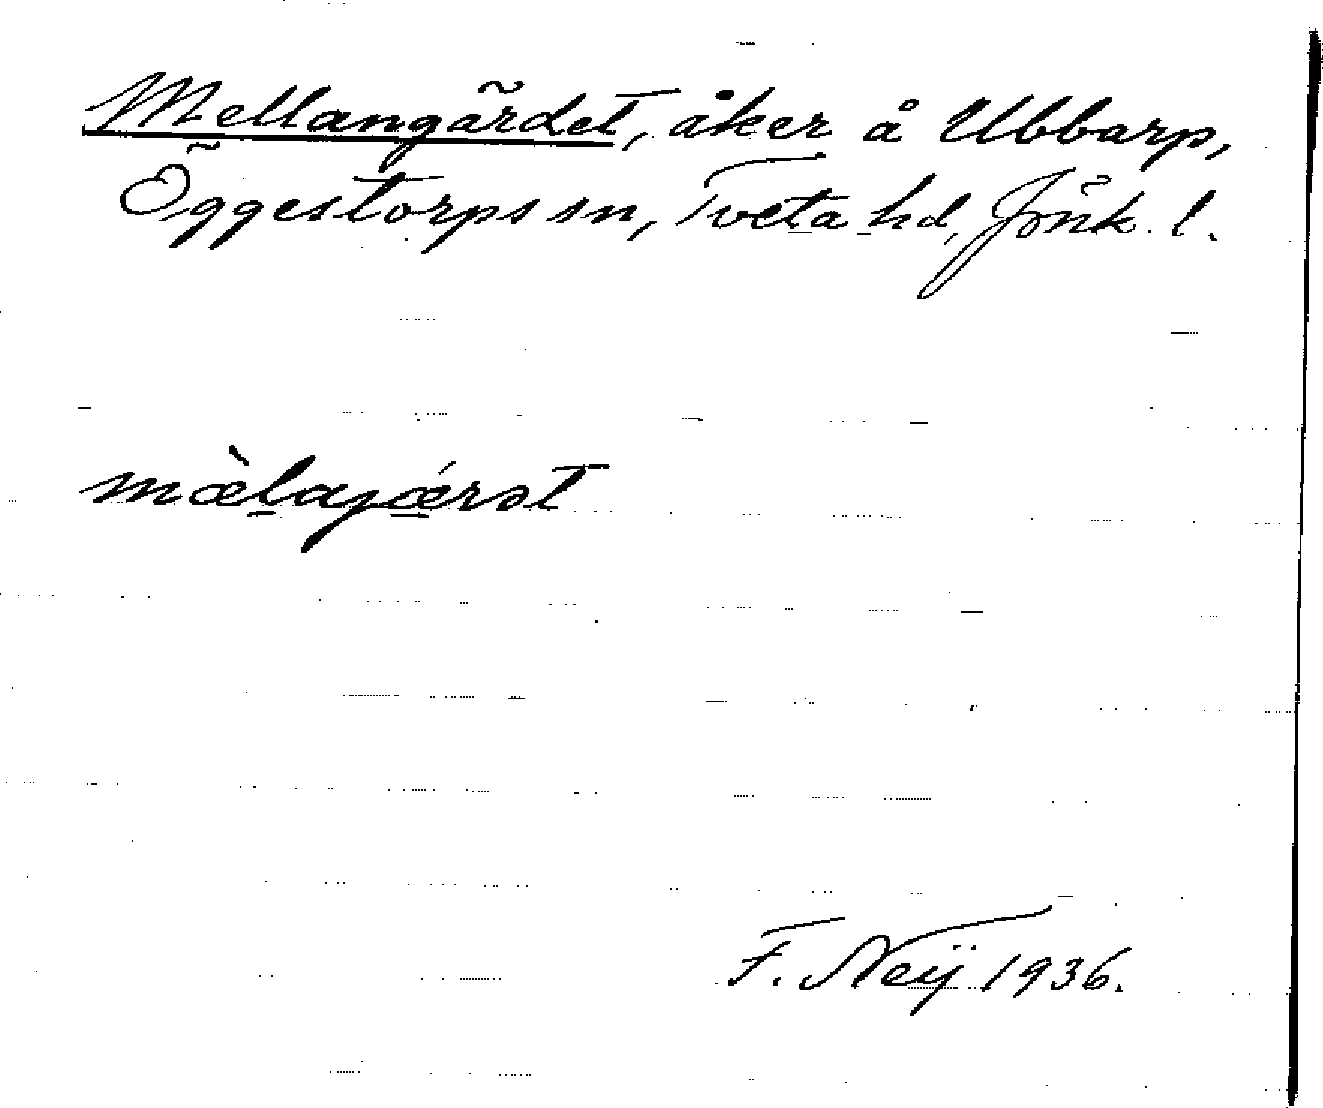 Mellangärdet, åker å Ubbarp,
Öggestorps sn, Tveta hd, Jönk. l.
mæ̀lajǽrət
F. Neÿ 1936.